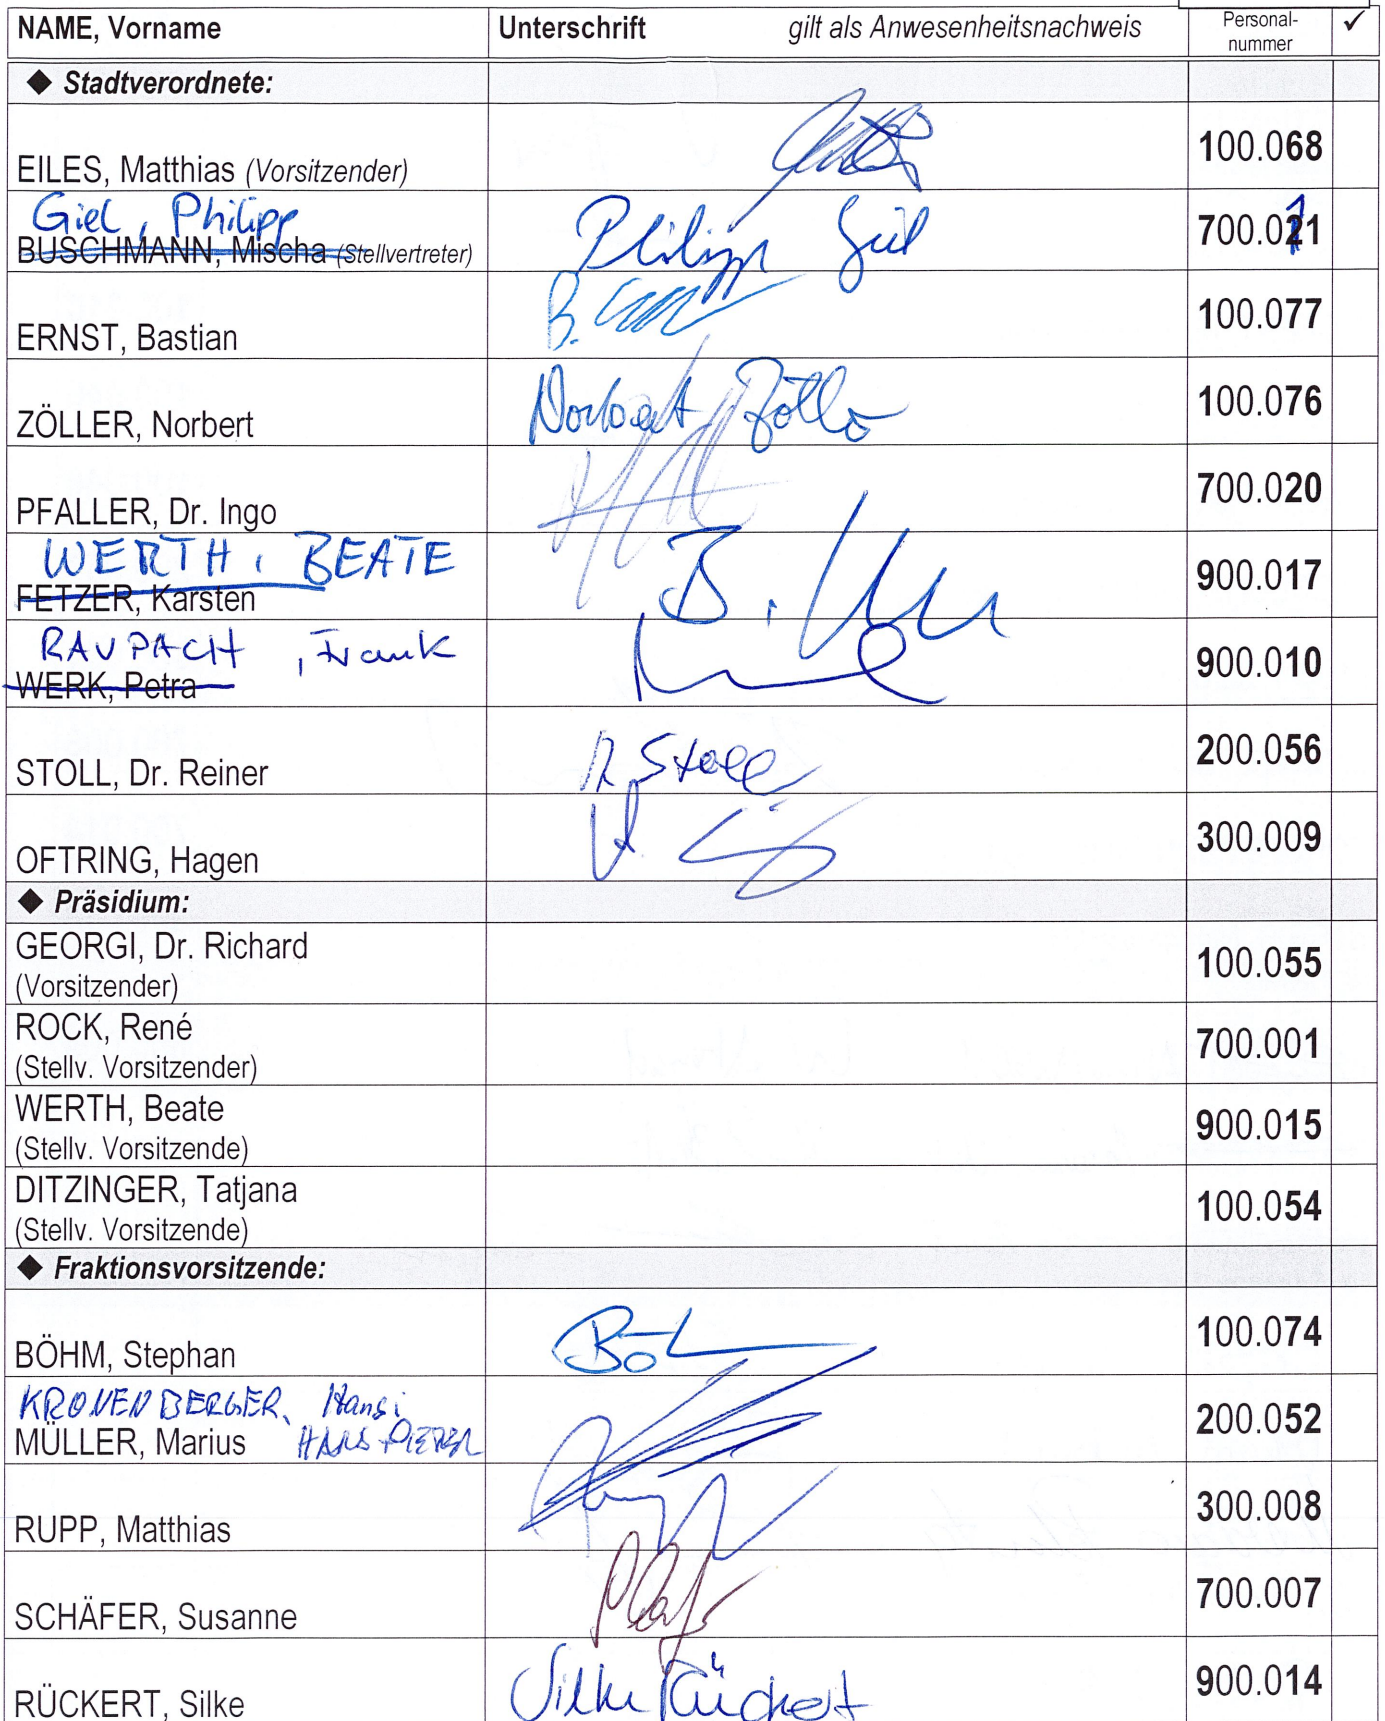 NAME, Vorname Unterschrift gilt als Anwesenheitsnachweis Personal-nummer ✓
◆ Stadtverordnete:
EILES, Matthias (Vorsitzender) 100.068
Giel, Philipp
BUSCHMANN, Mischa (Stellvertreter) Philipp Giel 700.021
ERNST, Bastian B. 100.077
ZÖLLER, Norbert Norbert Zöller 100.076
PFALLER, Dr. Ingo 700.020
WERTH, BEATE
FETZER, Karsten B. 900.017
RAUPACH, Frank
WERK, Petra 900.010
STOLL, Dr. Reiner R. Stoll 200.056
OFTRING, Hagen 300.009
◆ Präsidium:
GEORGI, Dr. Richard
(Vorsitzender) 100.055
ROCK, René
(Stellv. Vorsitzender) 700.001
WERTH, Beate
(Stellv. Vorsitzende) 900.015
DITZINGER, Tatjana
(Stellv. Vorsitzende) 100.054
◆ Fraktionsvorsitzende:
BÖHM, Stephan Böh 100.074
KRONENBERGER, Hansi
MÜLLER, Marius HANS-PETER 200.052
RUPP, Matthias 300.008
SCHÄFER, Susanne 700.007
RÜCKERT, Silke Silke Rückert 900.014